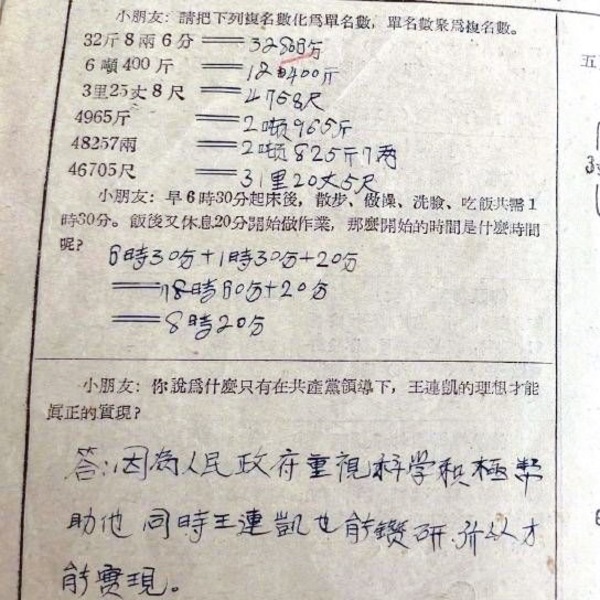 小朋友：請把下列複名數化爲單名數，單名數聚爲複名數。
32斤8兩6分 ══ 32868分
6噸400斤 ══ 12400斤
3里25丈8尺 ══ 4758尺
4965斤 ══ 2噸965斤
48257兩 ══ 2噸825斤7両
46705尺 ══ 31里20丈5尺
小朋友：早6時30分起床後，散步、做操、洗臉、吃飯共需1
時30分。飯後又休息20分開始做作業，那麼開始的時間是什麼時間
呢？
6時30分+1時30分+20分
══ 8時60分+20分
══ 8時20分
小朋友：你說爲什麼只有在共產黨領導下，王連凱的理想才能
眞正的實現？
答：因為人民政府重視科学和積極幫
助他 同時王連凱也能鑽研.所以才
能實現。
五
3